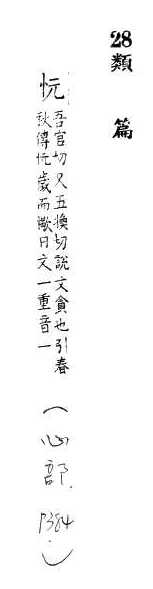 28類篇
忨吾官切又五換切說文貪也引春
秋傳忨歲而㵣日文一重音一
(心部. P384.)